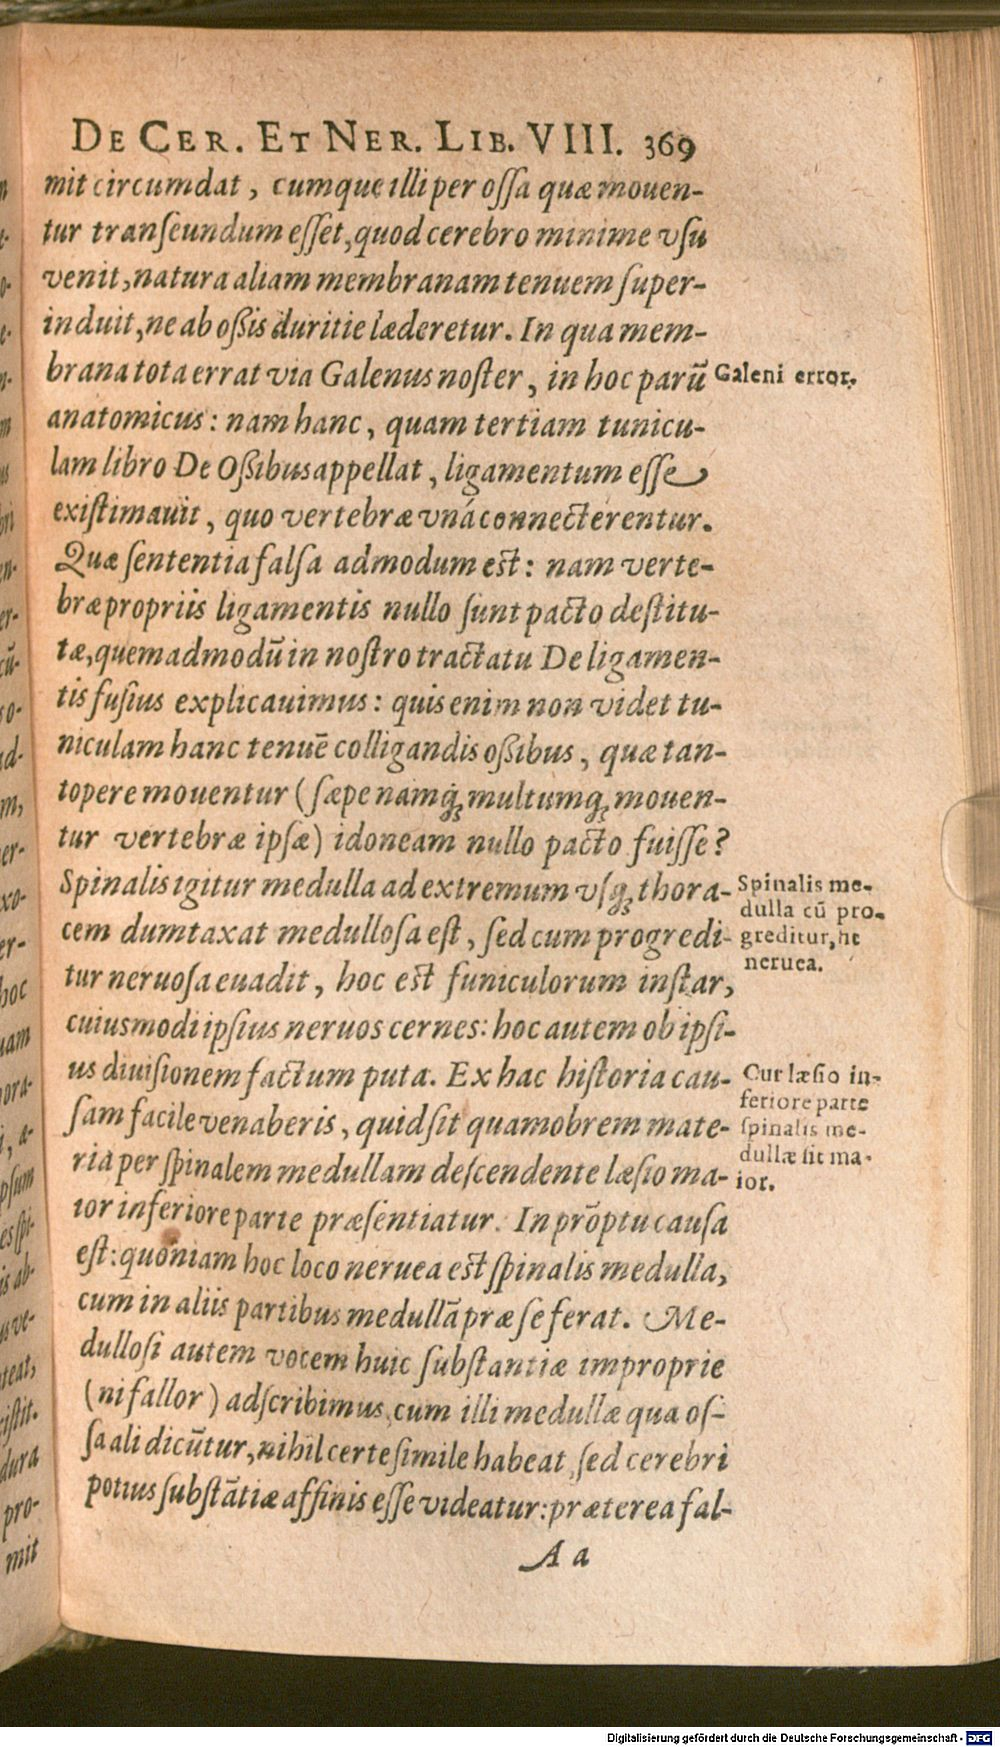 DE CER. ET NER. LIB. VIII. 369
mit circumdat, cumque illi per ossa quæ mouen-
tur transeundum esset, quod cerebro minime vsu
venit, natura aliam membranam tenuem super-
induit, ne ab oßis duritie læderetur. In qua mem-
brana tota errat via Galenus noster, in hoc parũ
Galeni error.
anatomicus: nam hanc, quam tertiam tunicu-
lam libro De Oßibus appellat, ligamentum esse
existimauit, quo vertebræ vnà connecterentur.
Quæ sententia falsa admodum est: nam verte-
bræ propriis ligamentis nullo sunt pacto destitu-
tæ, quemadmodũ in nostro tractatu De ligamen-
tis fusius explicauimus: quis enim non videt tu-
niculam hanc tenuẽ colligandis oßibus, quæ tan-
topere mouentur (sæpe namq́; multumq́; mouen-
tur vertebræ ipsæ) idoneam nullo pacto fuisse?
Spinalis igitur medulla ad extremum vsq́; thora-
cem dumtaxat medullosa est, sed cum progredi-
tur neruosa euadit, hoc est funiculorum instar,
Spinalis me-
dulla cũ pro-
greditur, fit
neruea.
cuiusmodi ipsius neruos cernes: hoc autem ob ipsi-
us diuisionem factum puta. Ex hac historia cau-
sam facile venaberis, quid sit quamobrem mate-
ria per spinalem medullam descendente læsio ma-
ior inferiore parte præsentiatur. In prõptu causa
Cur læsio in-
feriore parte
spinalis me-
dullæ sit ma-
ior.
est: quoniam hoc loco neruea est spinalis medulla,
cum in aliis partibus medullã præ se ferat. Me-
dullosi autem vocem huic substantiæ improprie
(ni fallor) adscribimus, cum illi medullæ qua os-
sa ali dicũtur, nihil certe simile habeat, sed cerebri
potius substãtiæ affinis esse videatur: præterea fal-
A a
mit
Digitalisierung gefördert durch die Deutsche Forschungsgemeinschaft - DFG